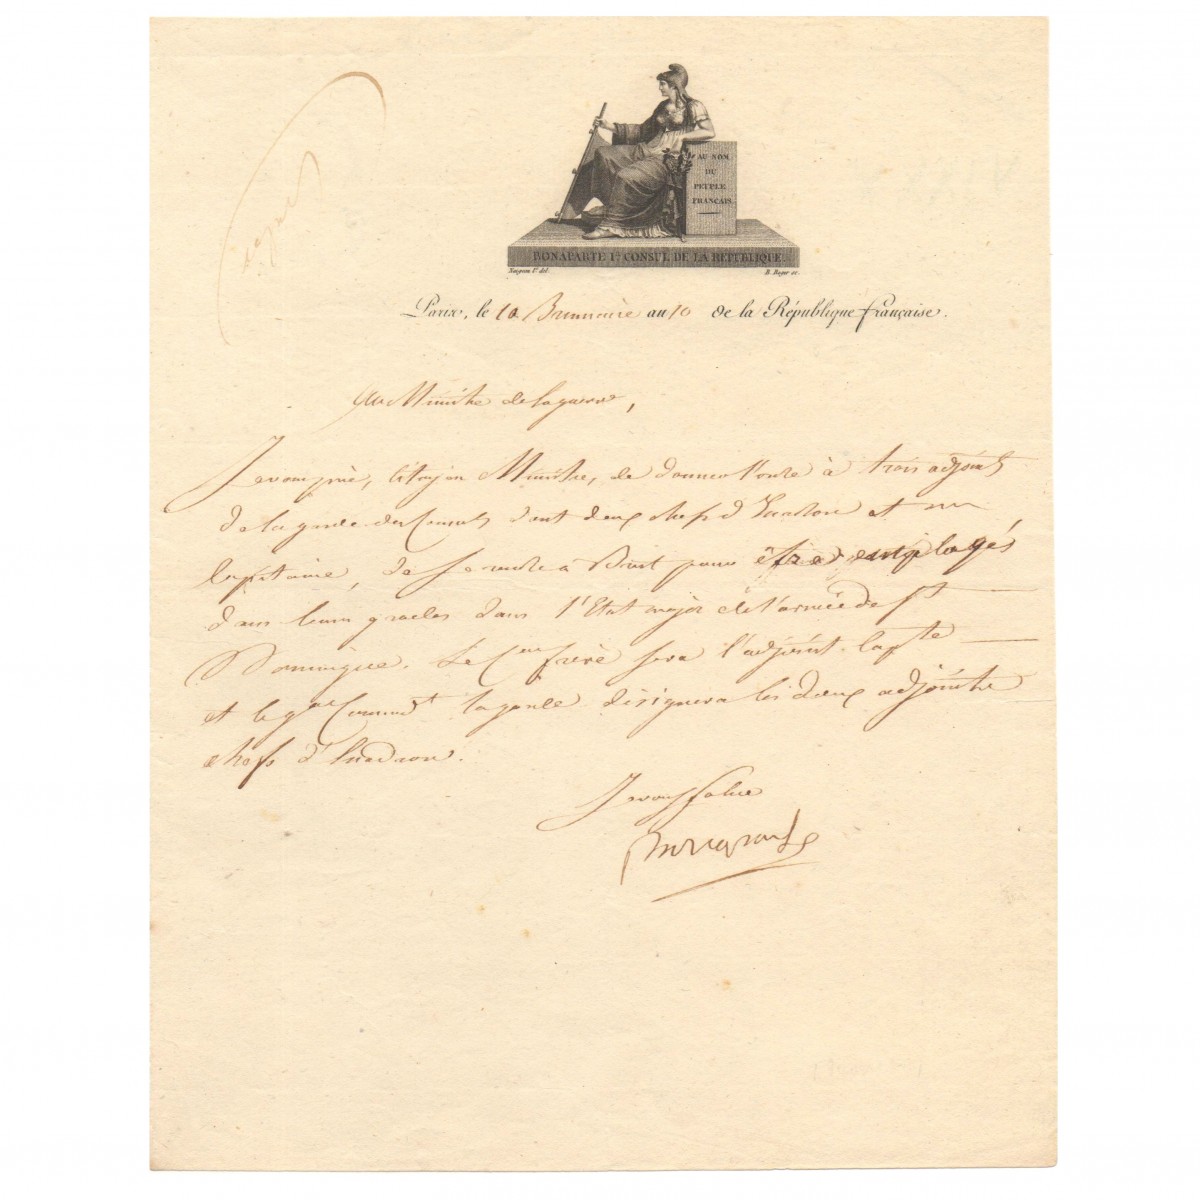 AU NOM
DU
PEUPLE
FRANÇAIS.
BONAPARTE 1er CONSUL DE LA REPUBLIQUE
Naigeon Ve del.
B. Roger sc.
Paris, le 10 Brumaire an 10 de la République française.
Au Ministre de la guerre,
Je vous prie, Citoyen Ministre, de donner l'ordre à trois adjoints
de la garde des Consuls dont deux chefs d'Escadron et un
Capitaine, de se rendre à Brest pour être employés
dans leurs grades dans l'Etat major de l'armée de St
Domingue. Le Cen frere sera l'adjoint Capne
et le gal Command la garde désignera les deux adjoints
chefs d'Escadron.
Je vous salue
Bonaparte